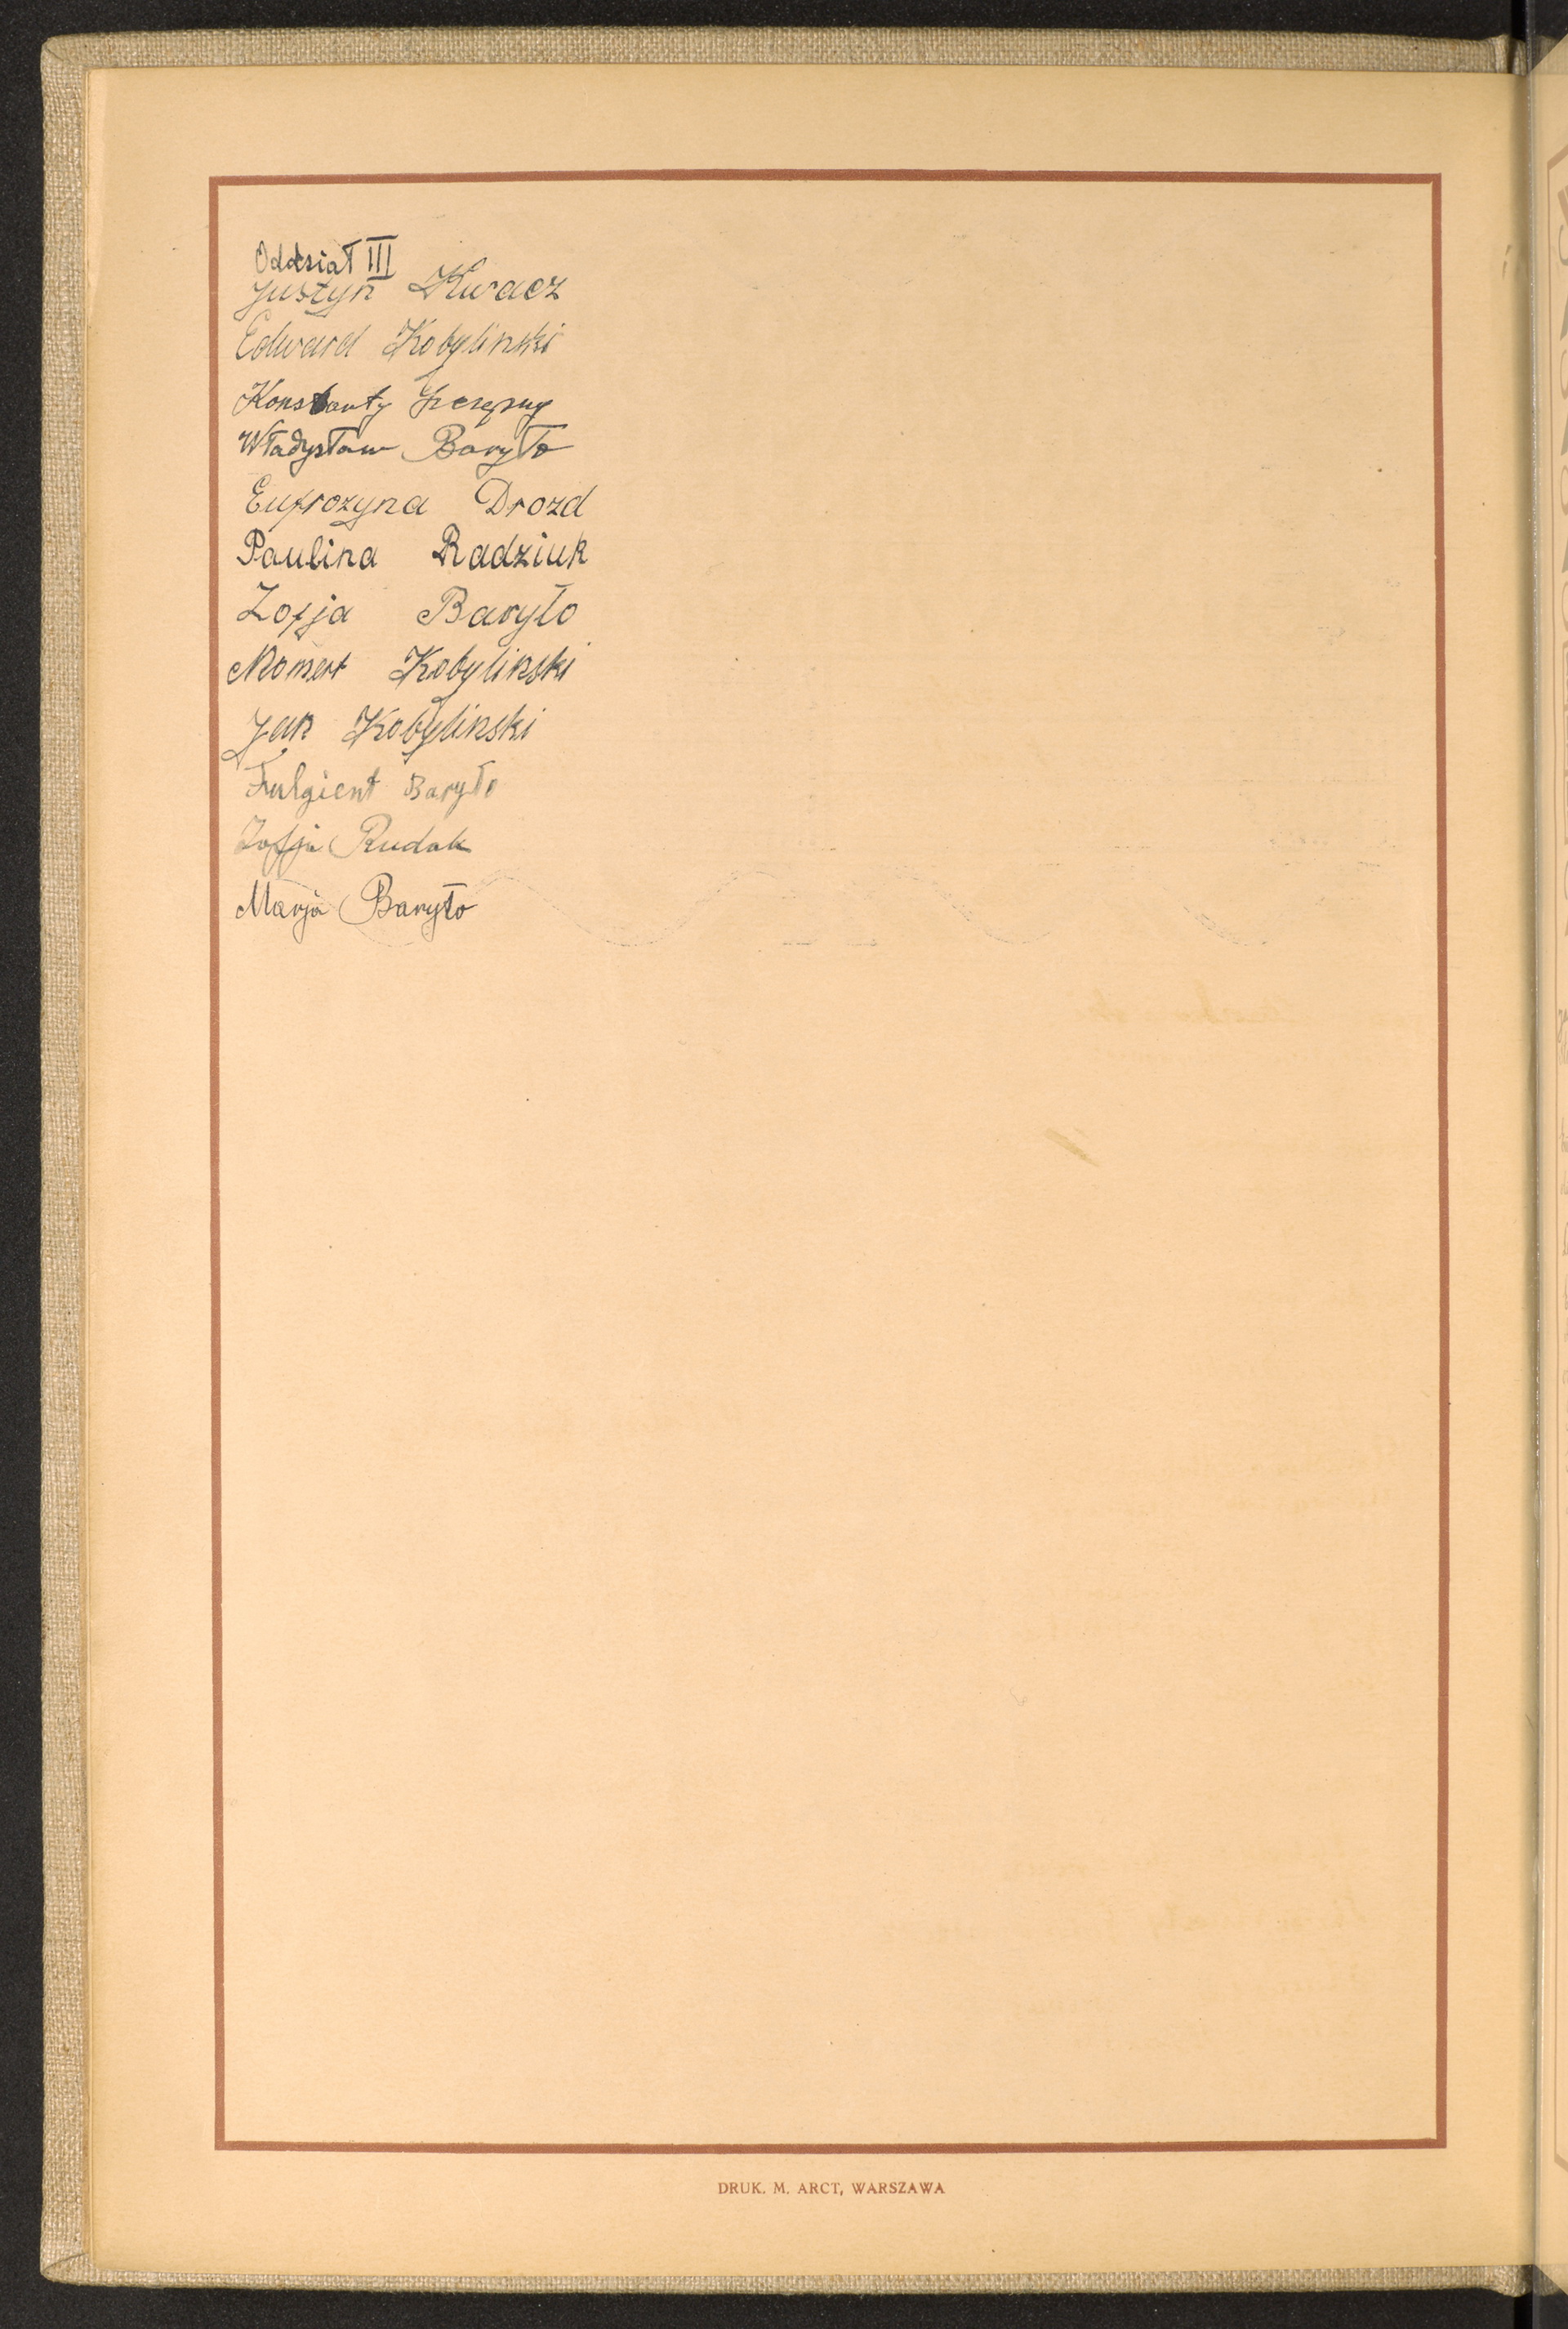 Oddział III
Justyn Kwacz
Edward Kobylinski
Konstanty
Władysław Baryło
Eufrozyna Drozd
Paulina Radziuk
Zofja Baryło
Kobylinski
Jan Kobylinski
Fulgient Baryło
Zofja Rudak
Marja Baryło
DRUK. M. ARCT, WARSZAWA